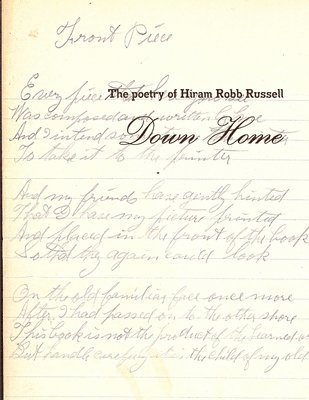 Front Piece
The poetry of Hiram Robb Russell
Down Home
Every piece
Was composed and written by me
And I intend so
To take it to the printer
And my friends have gently hinted
That I have my picture printed
And placed in the front of the book
So that they again could look
On the old familiar face once more
After I had passed on to the older shore
This book is not the product of the learned or
But handle carefully it is the child of my old